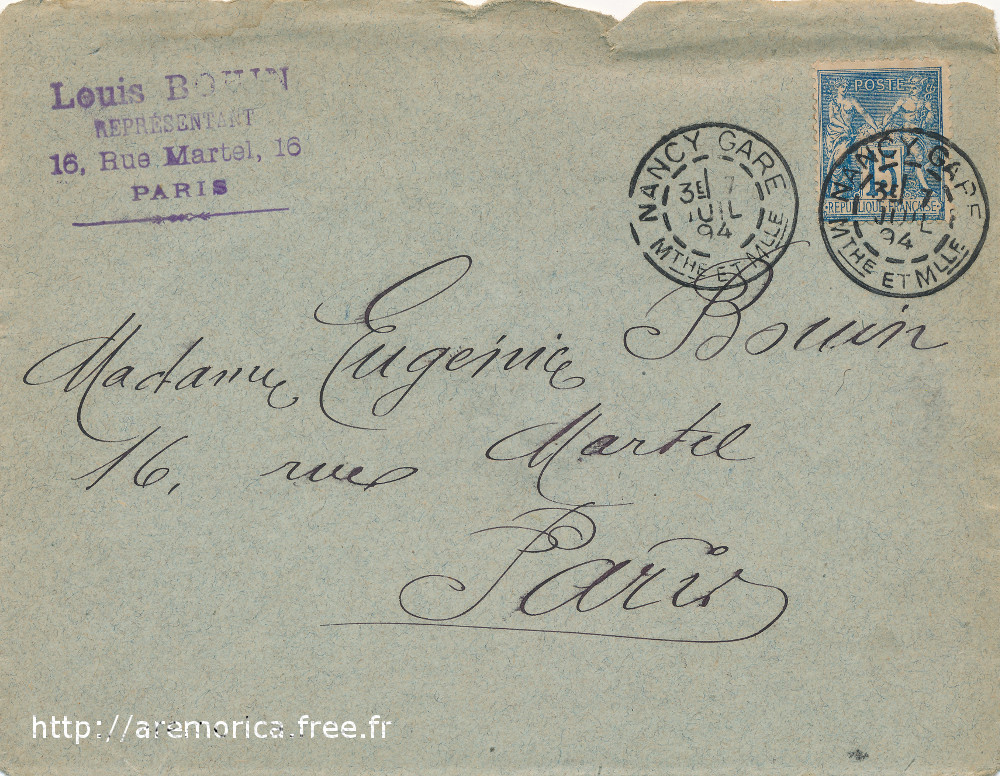 Louis BOUIN
REPRÉSENTANT
16, Rue Martel, 16
PARIS
POSTE
15
REPUBLIQUE FRANÇAISE
NANCY GARE
3E 7
JUIL
94
MTHE ET MLLE
NANCY GARE
3E 7
JUIL
94
MTHE ET MLLE
Madame Eugénie Bouin
16, rue Martel
Paris
http://aremorica.free.fr